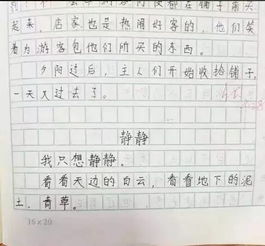 起来，店家也是热闹好客的，他们笑
着为游客包他们所买的东西。
夕阳过后，主人们开始收拾铺子，
一天又过去了。
静静
我只想静静。
看看天边的白云，看看地下的泥
土、青草。
15×20